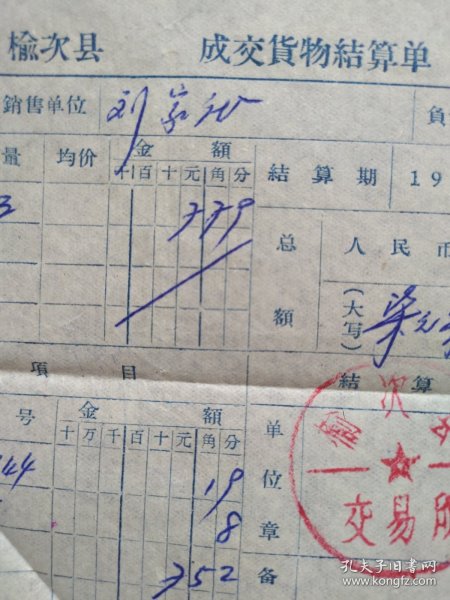 榆次县 成交貨物結算单
銷售单位 刘家 負
量 均价 金 額 結算期 19
千 百 十 元 角 分
3 779
总額 人民币
(大写) 柒元
項 目 結算
号 金 額 单位章
十 万 千 百 十 元 角 分
榆次
44 19
交易所
8
752 备
孔夫子旧书网
www.kongfz.com